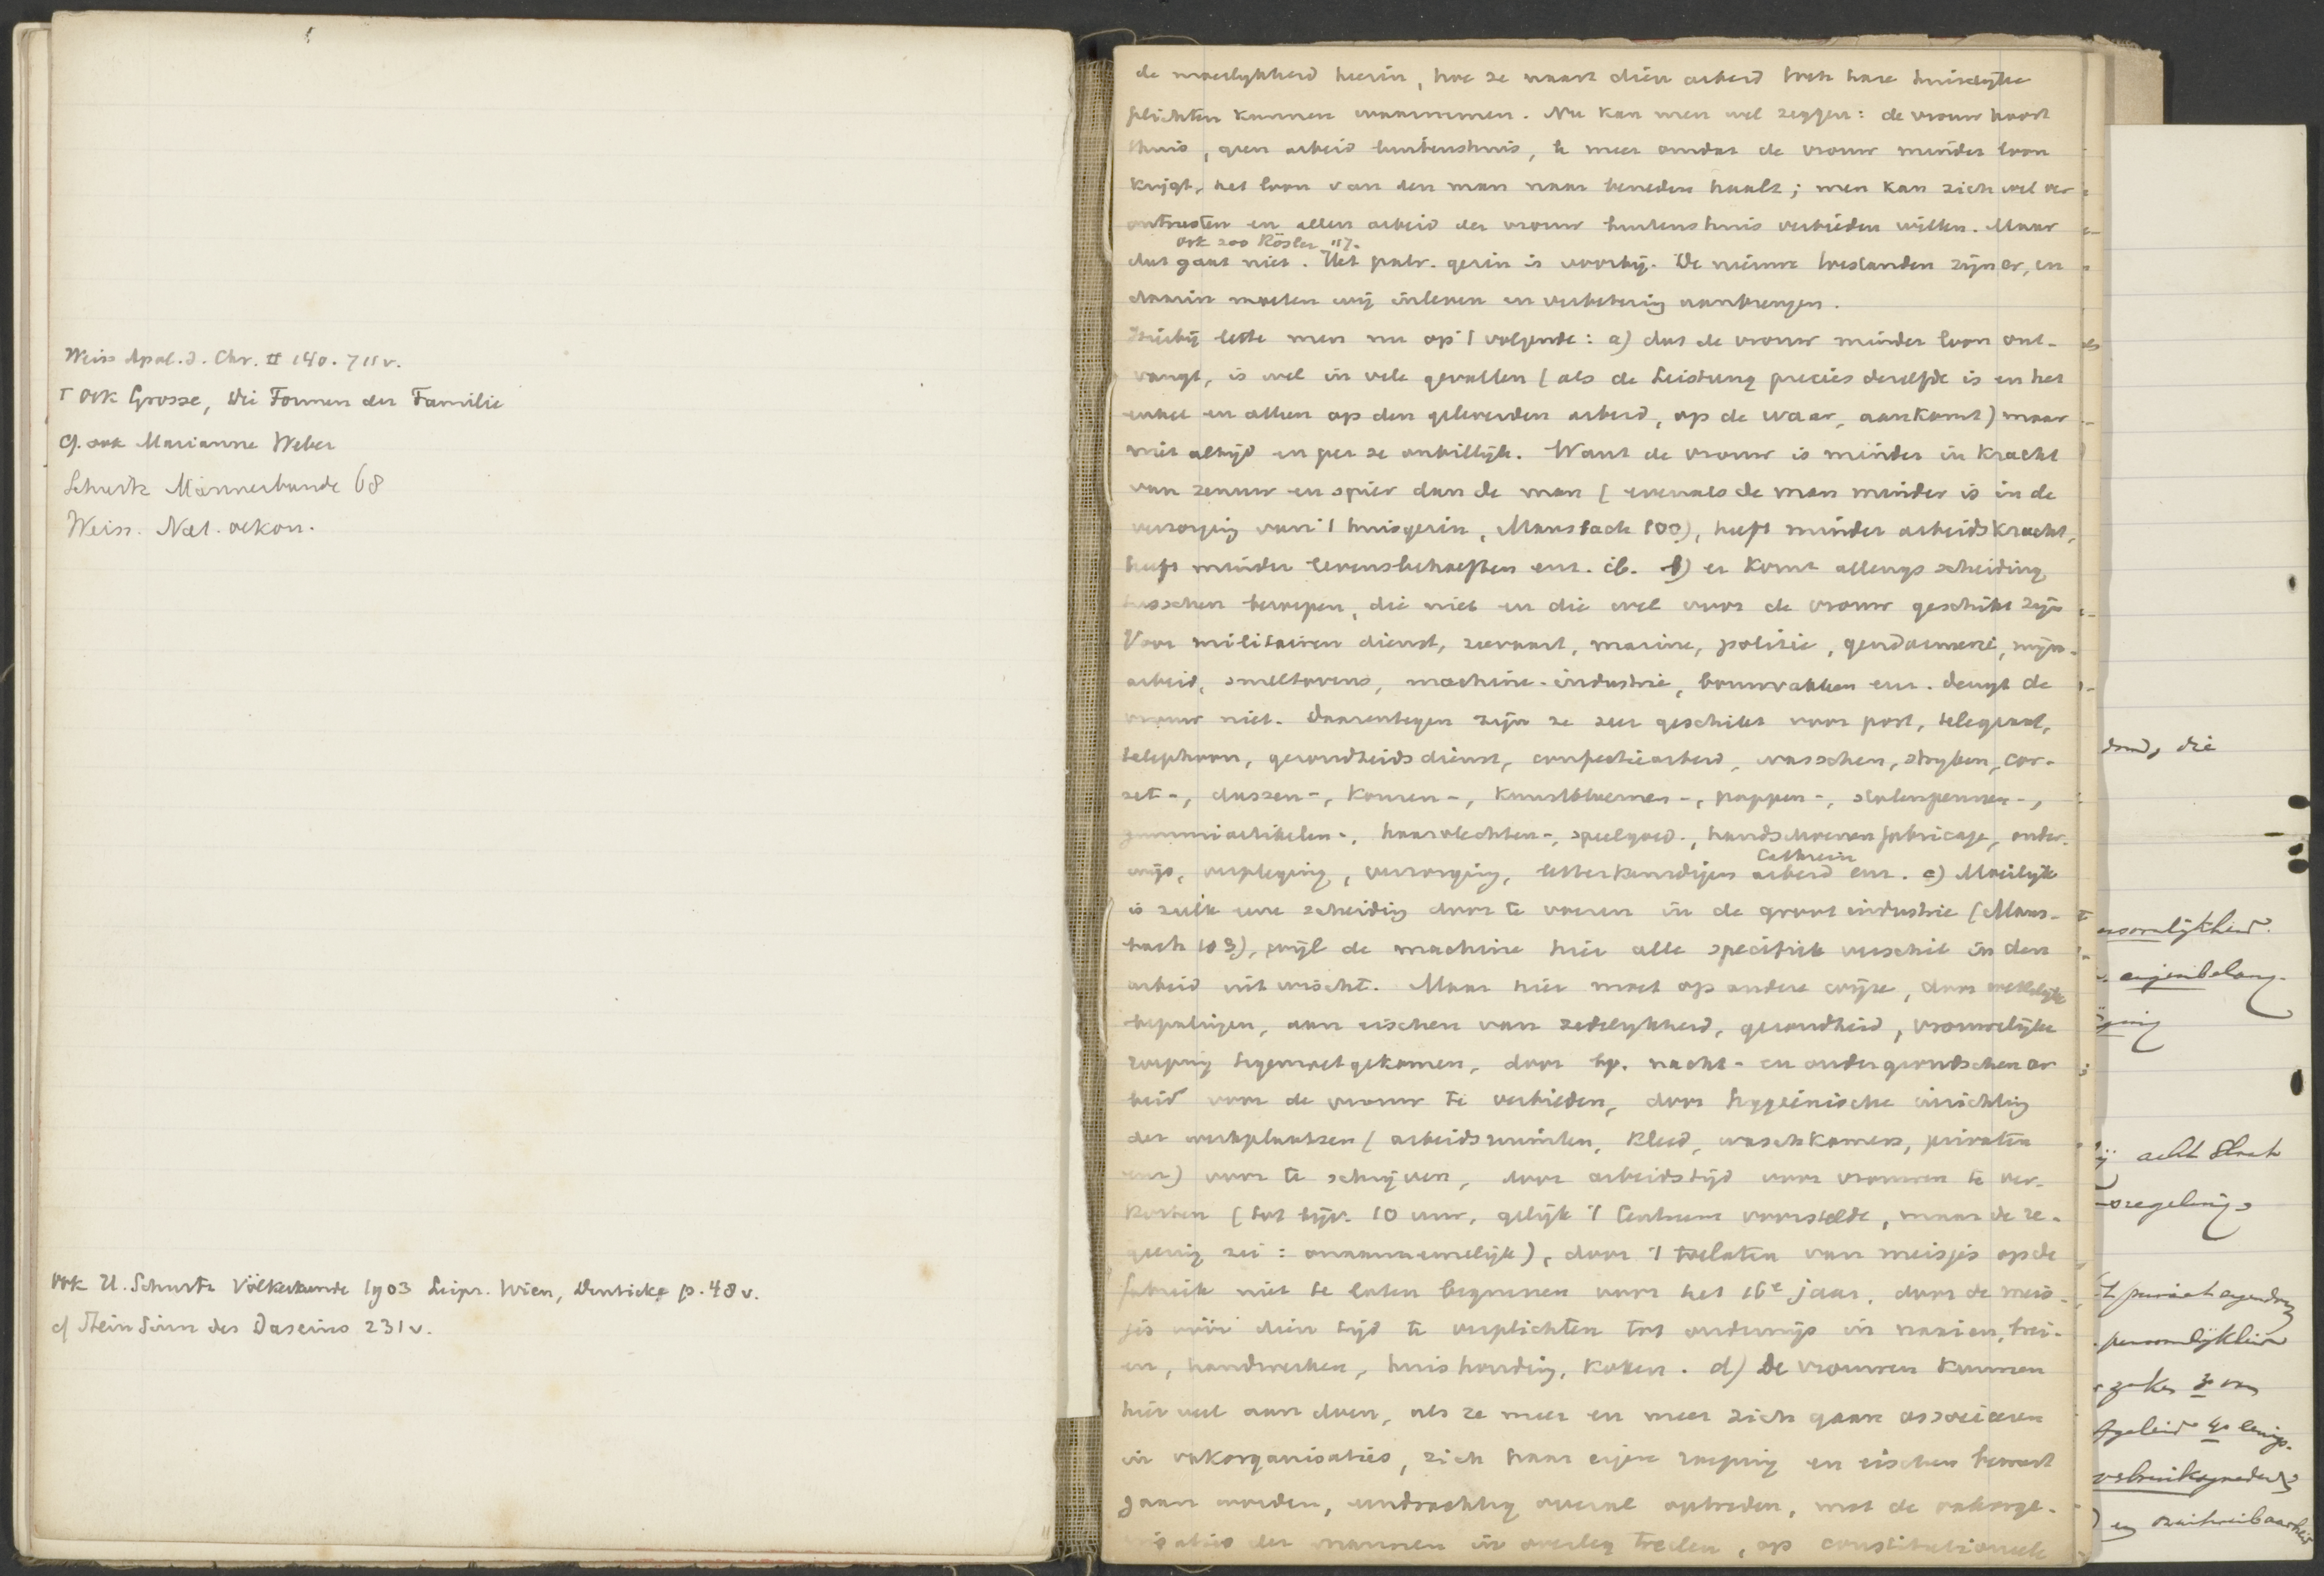 Weiss Apol. d. Chr. II 140. 711 v.
ook Grosse, Die Formen der Familie
cf. ook Marianne Weber
Schurtz Männerbunde 68
Weiss. Nat. oekon.
ook H. Schurtz Völkerkunde 1903 Leipz. Wien, Denticke p. 48 v.
cf Stein Sinn des Daseins 231 v.
de moeilijkheid hierin, hoe ze naast dien arbeid toch hare huiselijke
plichten kunnen waarnemen. Nu kan men wel zeggen: de vrouw hoort
thuis, geen arbeid buitenshuis, te meer omdat de vrouw minder loon
krijgt, het loon van den man naar beneden haalt; men kan zich wel ver
ontrusten en allen arbeid der vrouw buitenshuis verbieden willen. Maar
ook zoo Rösler 117.
dat gaat niet. Het patr. gezin is voorbij. De nieuwe toestanden zijn er, en
daarin moeten wij inleven en verbetering aanbrengen.
Hierbij lette men nu op 't volgende: a) dat de vrouw minder loon ont-
vangt, is wel in vele gevallen (als de Leistung precies dezelfde is en het
enkel en alleen op den geleverden arbeid, op de waar, aankomt) maar
niet altijd en per se onbillijk. Want de vrouw is minder in kracht
van zenuw en spier dan de man (evenals de man minder is in de
verzorging van 't huisgezin, Mausbach 100), heeft minder arbeidskracht,
heeft minder levensbehoeften enz. ib. b) er komt allengs scheiding
tusschen beroepen, die niet en die wel voor de vrouw geschikt zijn
Voor militairen dienst, zeevaart, marine, politie, gendarmerie, mijn-
arbeid, smeltovens, machine-industrie, bouwvakken enz. deugt de
vrouw niet. Daarentegen zijn ze zeer geschikt voor post, telegraaf,
telephoon, gezondheidsdienst, confectiearbeid, wasschen, strijken, cor-
set-, dassen-, kousen-, kunstbloemen-, poppen-, stalenpennen-,
gummiartikelen-, haarvlechten-, speelgoed-, handschoenenfabricage, onder-
wijs, verpleging, verzorging, letterkundigen arbeid enz. c) Moeilijk
Cathrein
is zulk eene scheiding door te voeren in de grootindustrie (Maus-
bach 103), wijl de machine hier alle specifiek verschil in den
arbeid uitwischt. Maar hier moet op andere wijze, door wettelijke
bepalingen, aan eischen van zedelijkheid, gezondheid, vrouwelijke
roeping tegemoetgekomen, door bv. nacht- en ondergrondschen ar
beid voor de vrouw te verbieden, door hygeinische inrichting
der werkplaatsen (arbeidsruimten, kleed, waschkamers, privaten
enz) voor te schrijven, door arbeidstijd voor vrouwen te ver-
korten (tot bijv. 10 uur, gelijk 't Centrum voorstelde, maar de re-
geering zei: onaannemelijk), door 't toelaten van meisjes op de
fabriek niet te laten beginnen voor het 16e jaar, door de meis-
jes vóór dien tijd te verplichten tot onderwijs in naaien, brei-
en, handwerken, huishouding, koken. d) De vrouwen kunnen
hier veel aan doen, als ze meer en meer zich gaan associeeren
in vakorganisaties, zich haar eigene roeping en eischen bewust
gaan worden, eendrachtig overal optreden, met de vakorga-
nisaties der mannen in overleg treden, op constitutioneele
die
eigenbelang.
acht
regeling
persoonlijkheid